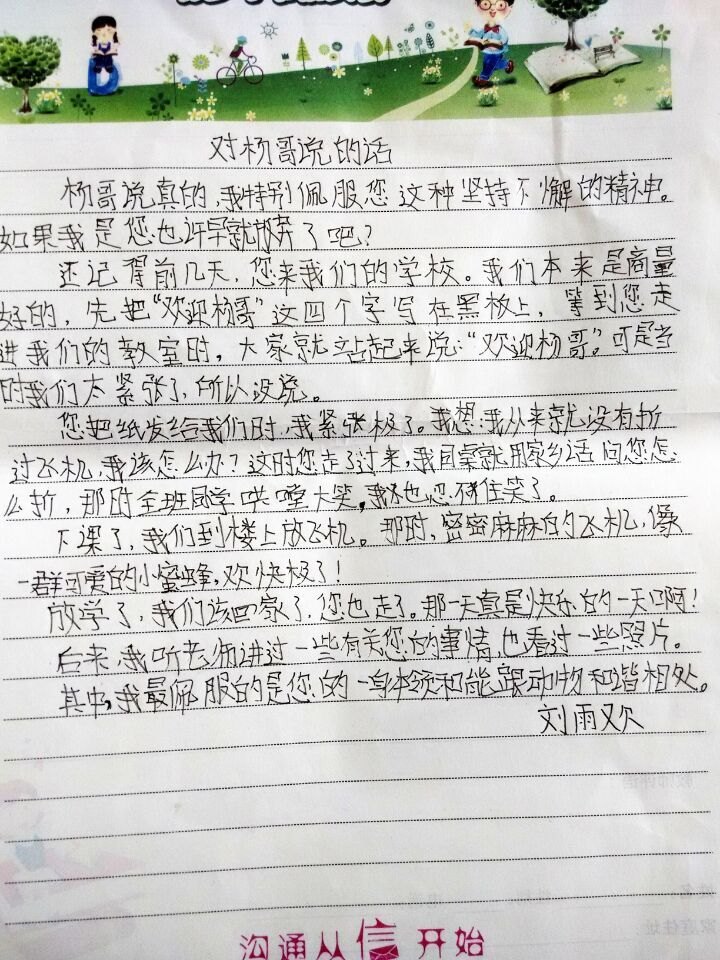 对杨哥说的话
杨哥说真的,我特别佩服您这种坚持不懈的精神。
如果我是您也许早就放弃了吧?
还记得前几天,您来我们的学校。我们本来是商量
好的,先把“欢迎杨哥”这四个字写在黑板上,等到您走
进我们的教室时,大家就站起来说:“欢迎杨哥。”可是当
时我们太紧张了,所以没说。
您把纸发给我们时,我紧张极了。我想:我从来就没有折
过飞机,我该怎么办?这时您走了过来,我同桌就用家乡话问您怎
么折,那时全班同学哄堂大笑。我也忍不住笑了。
下课了,我们到楼上放飞机。那时,密密麻麻的飞机,像
一群可爱的小蜜蜂,欢快极了!
放学了,我们该回家了,您也走了。那一天真是快乐的一天啊!
后来,我听老师讲过一些有关您的事情,也看过一些照片。
其中,我最佩服的是您的一身本领和能跟动物和谐相处。
刘雨欢
沟通从信开始